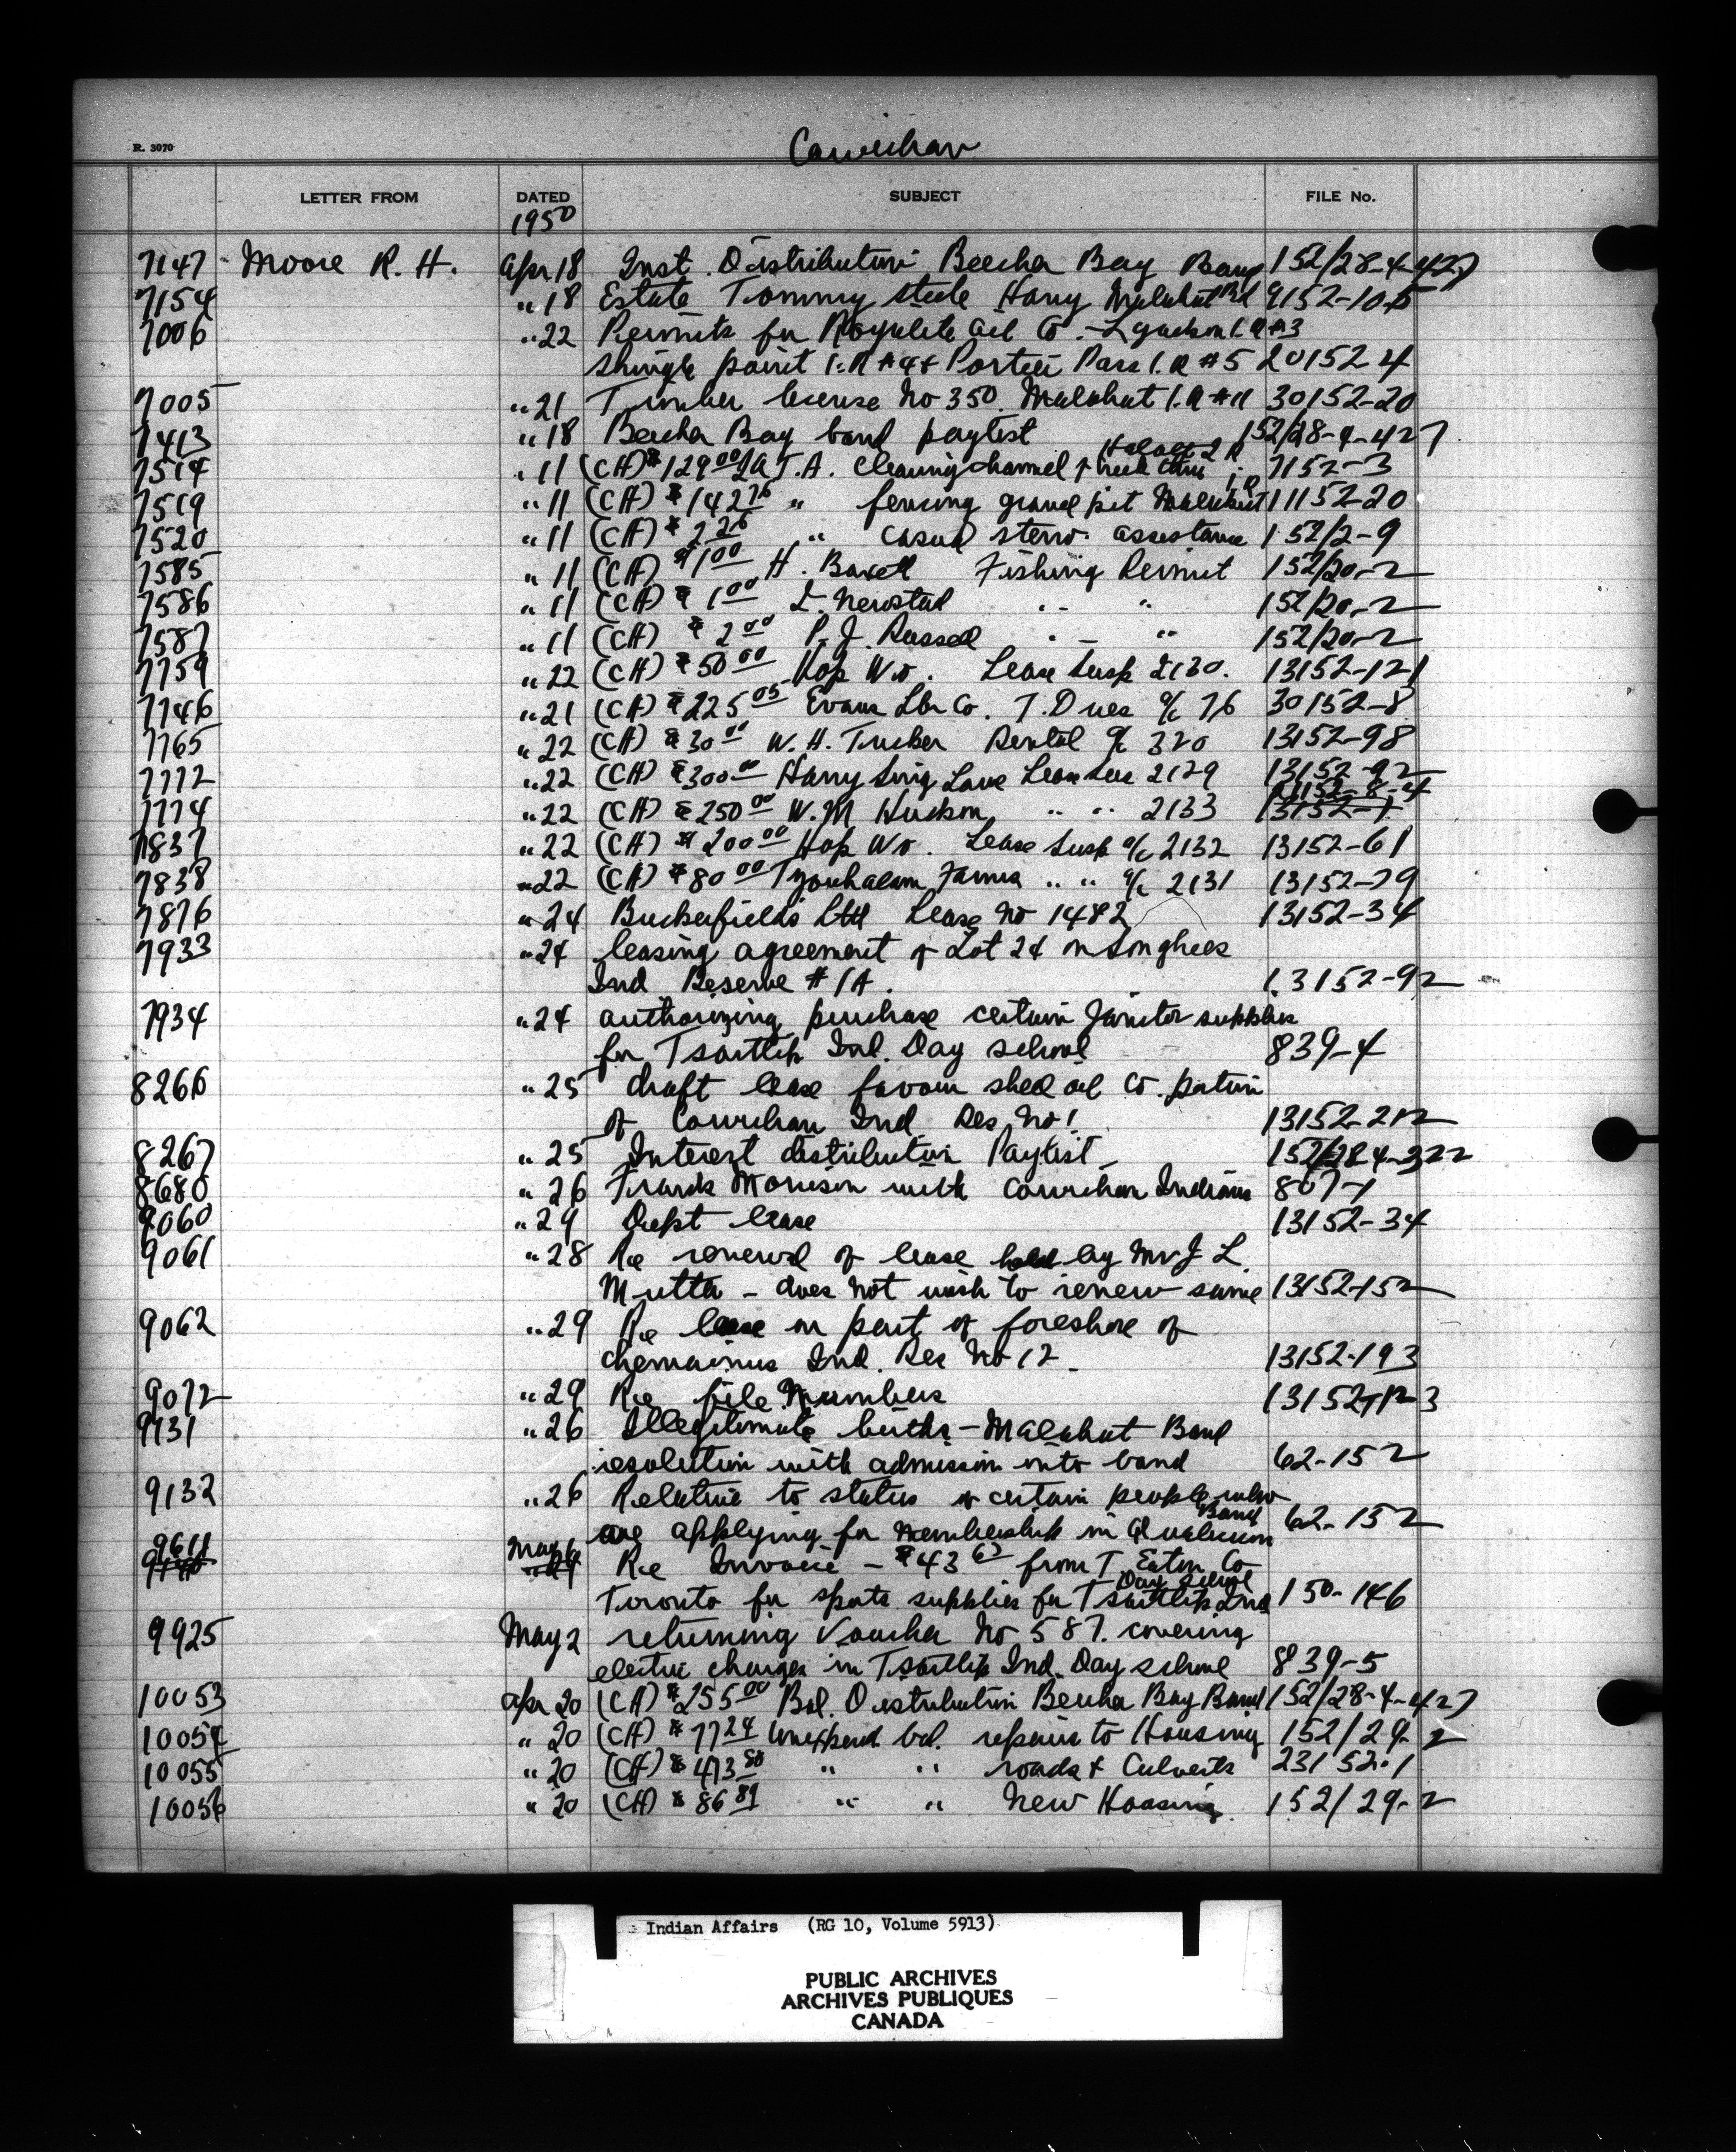 Cowichan
R. 3070
LETTER FROM DATED SUBJECT FILE No.
1950
7147 Moore R. H. Apr 18 Inst. Distribution Beecha Bay Band 152/28-4-427
7154 " 18 Estate Tommy Steele Harry Malahat Bd 9152-10-5
7006 " 22 Permits for Royalite Oil Co. - I.R #3
Shingle point I.R #4 & Portier Pass I.R #5 20152-4
7005 " 21 Timber license No 350. Malahat I.R #11 30152-20
7413 " 18 Beecha Bay band paylist 152/28-4-427
Halalt 2 R
7514 " 11 (CH) $129 00 T.A. Clearing channel 7152-3
7519 " 11 (CH) $142 76 " fencing gravel pit Malahat I.R 11152-20
7520 " 11 (CH) $2 26 " casual steno. assistance 152/2-9
7585 " 11 (CH) $1 00 H. Fishing Permit 152/20-2
7586 " 11 (CH) $1 00 " " 152/20-2
7587 " 11 (CH) $2 00 P. J. Russell " " 152/20-2
7759 " 22 (CH) $50 00 Hop Wo. Lease Susp 2130. 13152-121
7746 " 21 (CH) $225 05 Evans Lbr Co. T. Dues a/c 76 30152-8
7765 " 22 (CH) $30 00 W. H. Tucker Rental a/c 320 13152-98
7772 " 22 (CH) $300 00 Harry Sing Lease 2129 13152-92
11152-8-4
7774 " 22 (CH) $250 00 W. M " " 2133 13152-1
7837 " 22 (CH) $200 00 Hop Wo. Lease Susp a/c 2132 13152-61
7838 " 22 (CH) $80 00 Tzouhalem Farms " " a/c 2131 13152-79
7876 " 24 Buckerfield's Ltd Lease No 1482 13152-34
7933 " 24 leasing agreement of Lot 24 on Songhees
Ind Reserve #1A. 13152-92
7934 " 24 authorizing purchase certain Janitor supplies
for Tsartlip Ind. Day school 839-4
8266 " 25 draft lease favour shell oil Co. portion
of Cowichan Ind Res No 1 13152-212
8267 " 25 Interest distribution Paylist - 152/28-4-322
8680 " 26 Frank Morrison with Cowichan Indians 807-1
9060 " 29 Dept lease 13152-34
9061 " 28 Re renewal of lease held by Mr J L.
Mutter - does not wish to renew same 13152-152
9062 " 29 Re lease on part of foreshore of
Chemainus Ind. Res No 12 - 13152-193
9072 " 29 Re file Numbers
9131 " 26 Illegitimate births - Malahat Band
resolution with admission into band 62-152
9132 " 26 Relative to status of certain people who
are applying for membership in Qualicum Band 62-152
9611 May 1 Re Invoice - $43 63 from T. Eaton Co
Toronto for sports supplies for Tsartlip Ind Day School 150-146
9925 May 2 returning Voucher No 587. covering
electric charges in Tsartlip Ind. Day school 839-5
10053 Apr 20 (CH) $255 00 Bal. Distribution Beecha Bay Band 152/28-4-427
10054 " 20 (CH) $77 24 Unexpend. bal. repairs to Housing 152/29-2
10055 " 20 (CH) $473 80 " " roads & Culverts 23152-1
10056 " 20 (CH) $86 89 " " New Housing. 152/29-2
Indian Affairs (RG 10, Volume 5913)
PUBLIC ARCHIVES
ARCHIVES PUBLIQUES
CANADA